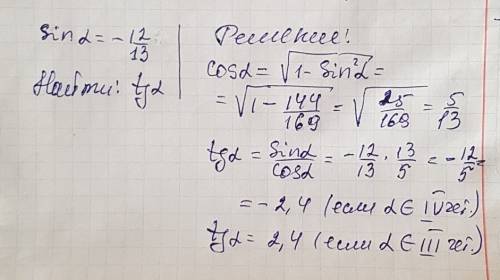 sin α = -12/13
Найти: tg α
Решение!
cos α = √(1 - sin²α) =
= √(1 - 144/169) = √(25/169) = 5/13
tg α = sin α/cos α = -12/13 · 13/5 = -12/5 =
= -2,4 (если α ∈ IV чет.)
tg α = 2,4 (если α ∈ III чет.)